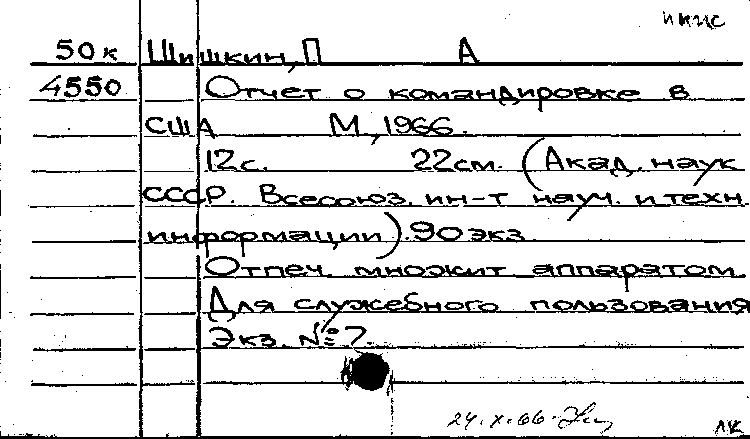 ИКИС
50к Шишкин, П А
4550 Отчет о командировке в
США М., 1966.
12с. 22см. (Акад. наук
СССР. Всесоюз. ин-т науч. и техн.
информации). 90 экз.
Отпеч. множит аппаратом.
Для служебного пользования
Экз. №7.
24.X.66.